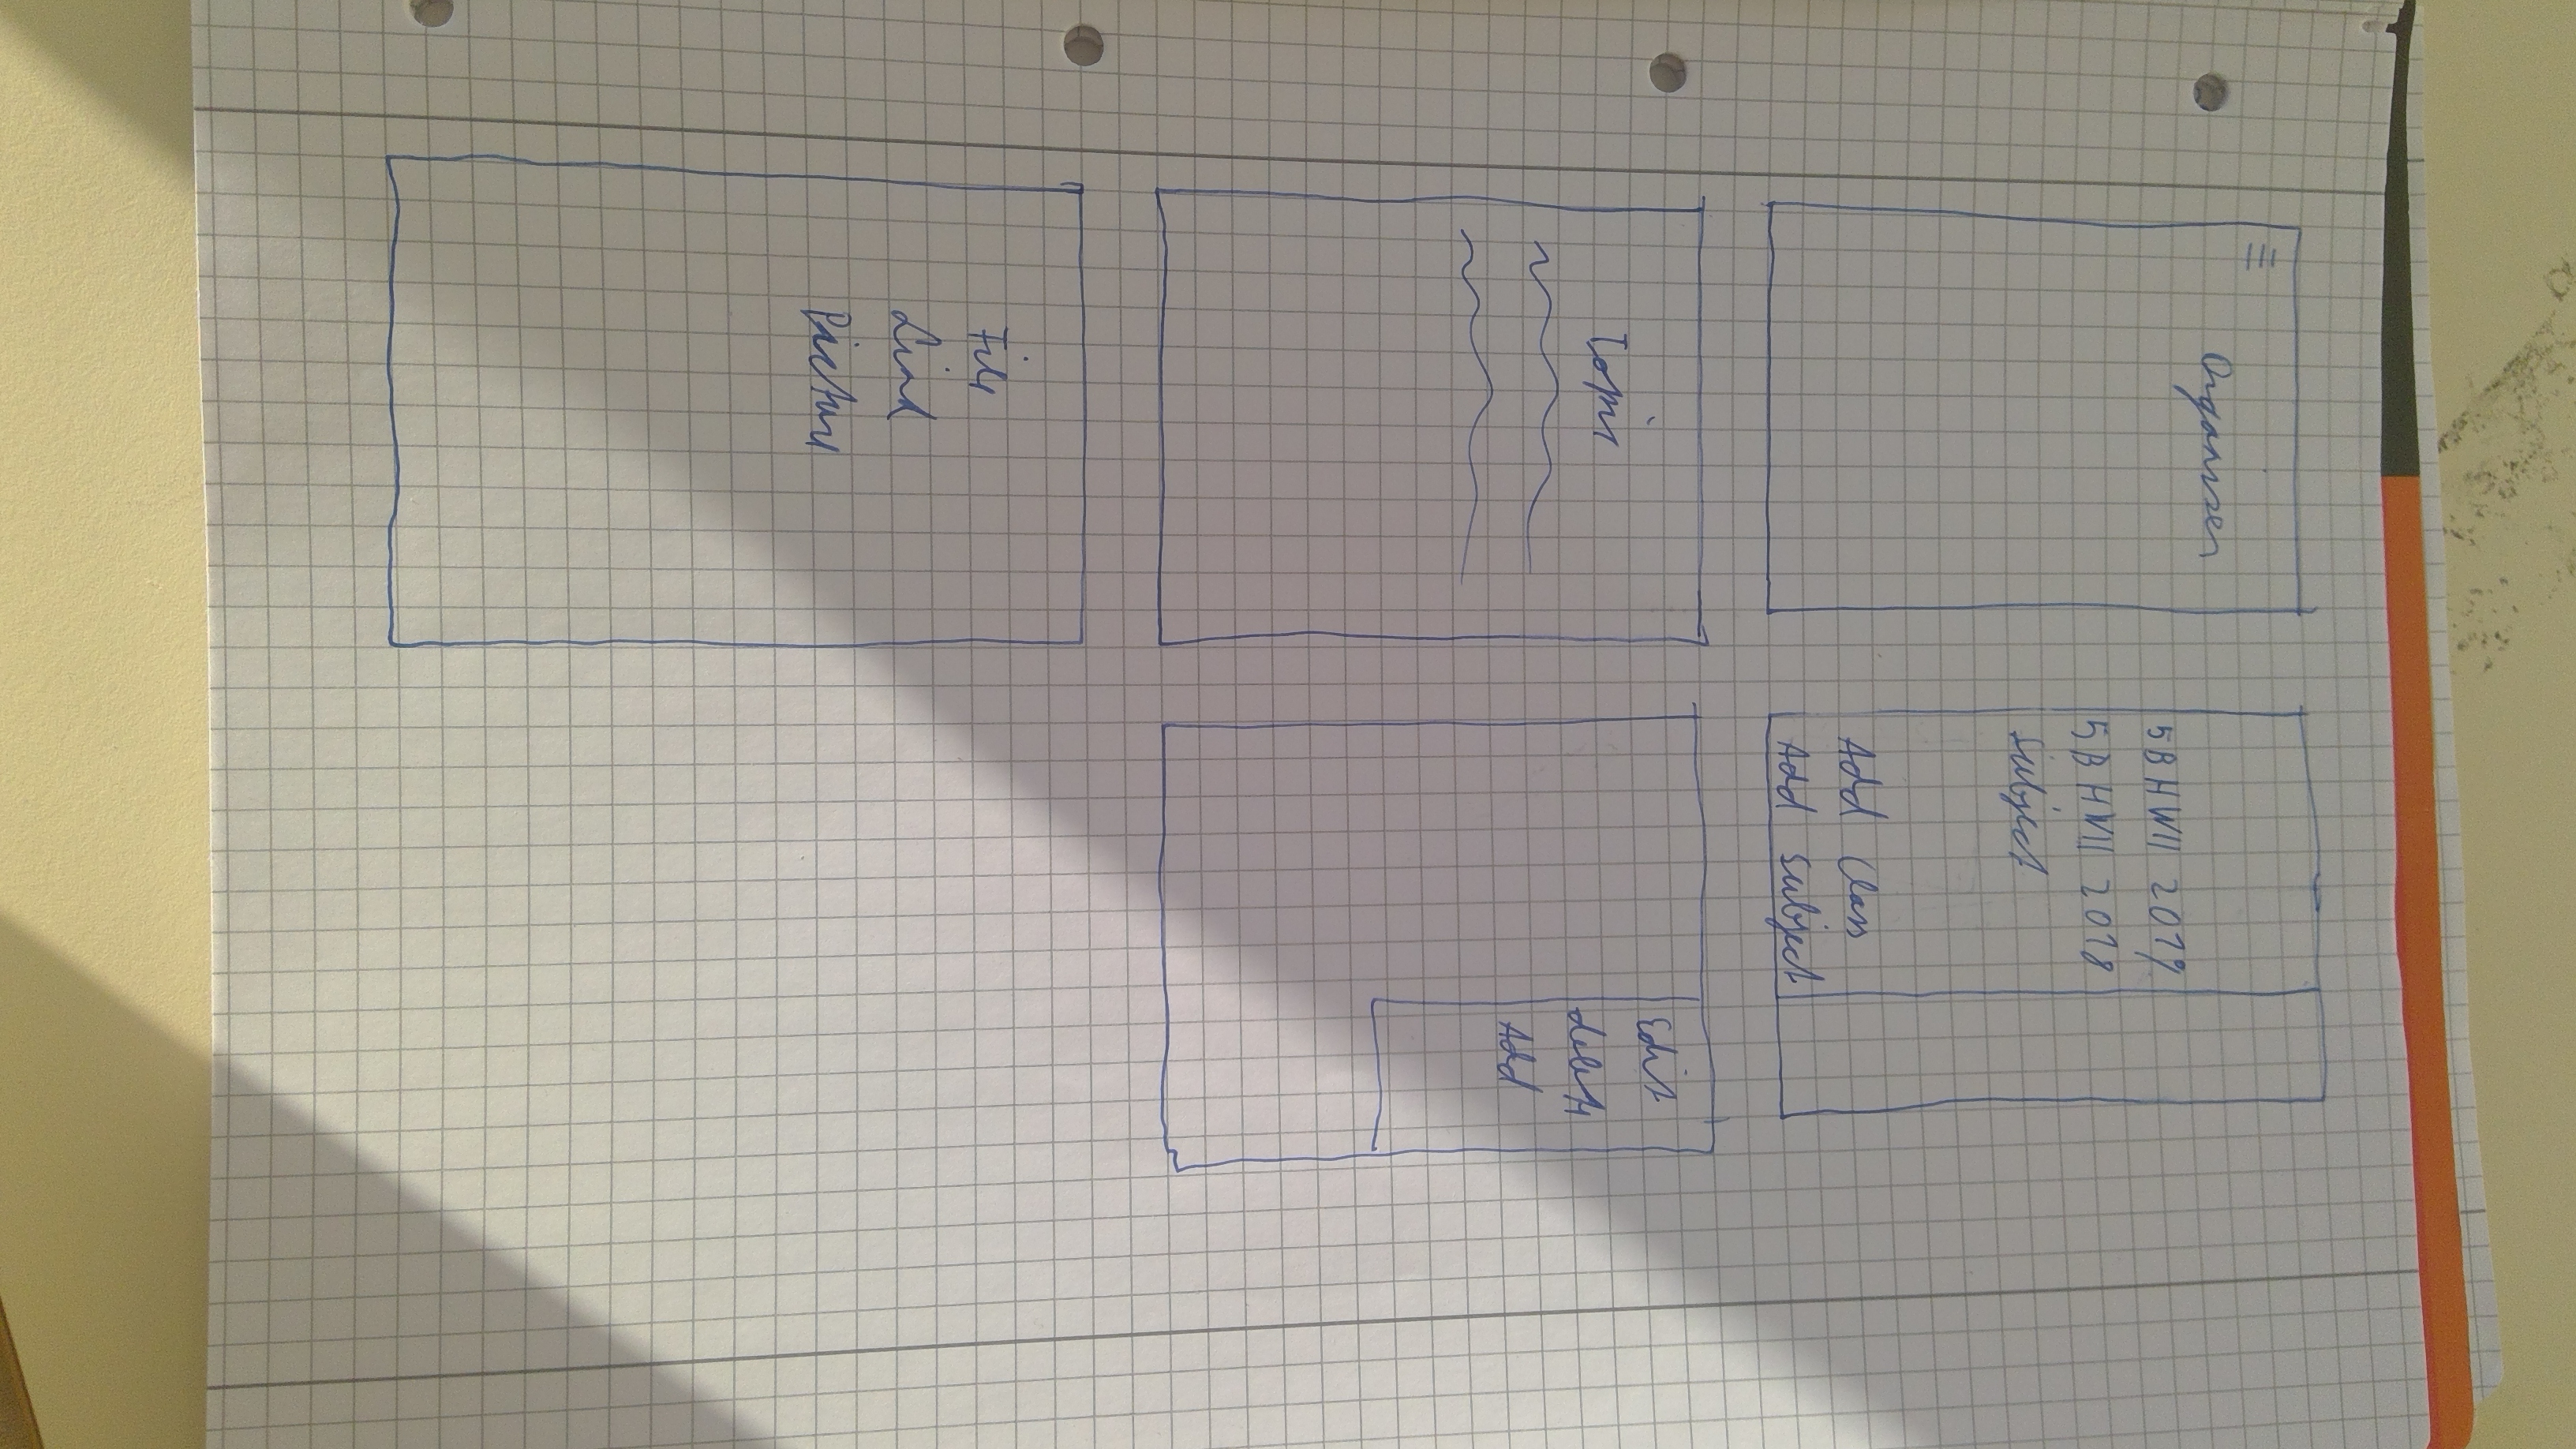 Organizer
5BHWII 2019
5BHWII 2018
Subject
Add Class
Add Subject
Topic
Edit
delete
Add
File
Link
Picture